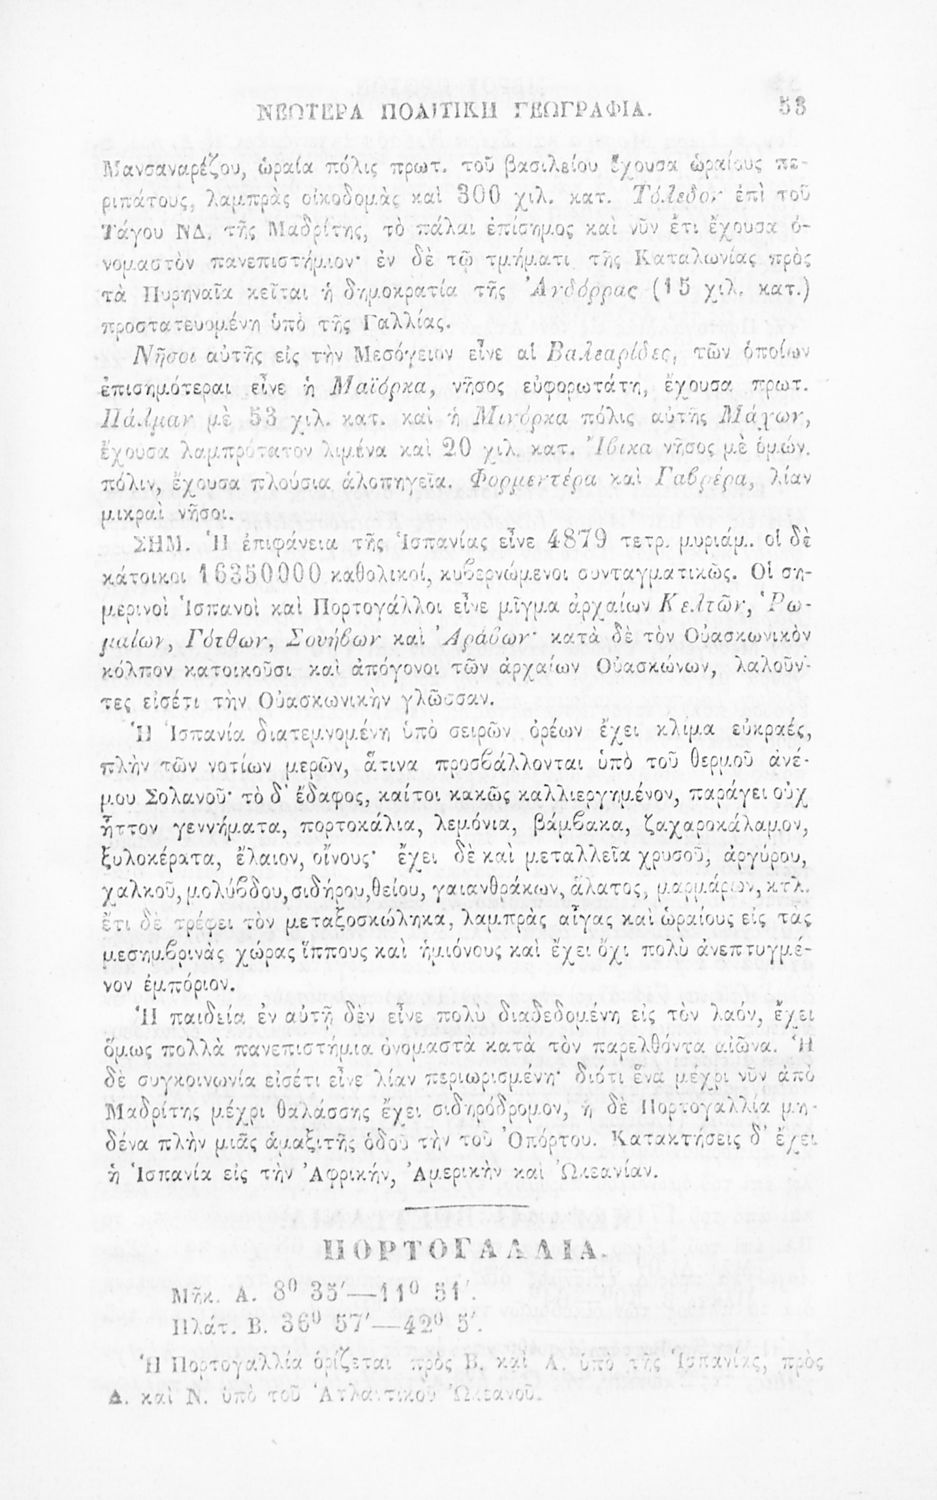 ΝΕΩΤΕΡΑ ΠΟΛΙΤΙΚΗ ΓΕΩΓΡΑΦΙΑ. 53
Μανσαναρέζου, ὡραία πόλις πρωτ. τοῦ βασιλείου ἔχουσα ὡραίους πε-
ριπάτους, λαμπρὰς οἰκοδομὰς καὶ 300 χιλ. κατ. Τόλεδον ἐπὶ τοῦ
Τάγου ΝΔ. τῆς Μαδρίτης, τὸ πάλαι ἐπίσημος καὶ νῦν ἔτι ἔχουσα ὀ-
νομαστὸν πανεπιστήμιον· ἐν δὲ τῷ τμήματι τῆς Καταλωνίας πρὸς
τὰ Πυρηναῖα κεῖται ἡ δημοκρατία τῆς Ἀνδόρρας (15 χιλ. κατ.)
προστατευομένη ὑπὸ τῆς Γαλλίας.
Νῆσοι αὐτῆς εἰς τὴν Μεσόγειον εἶνε αἱ Βαλεαρίδες, τῶν ὁποίων
ἐπισημότεραι εἶνε ἡ Μαϊόρκα, νῆσος εὐφορωτάτη, ἔχουσα πρωτ.
Πάλμαν μὲ 53 χιλ. κατ. καὶ ἡ Μινόρκα πόλις αὐτῆς Μάχων,
ἔχουσα λαμπρότατον λιμένα καὶ 20 χιλ. κατ. Ἴβικα νῆσος μὲ ὁμών.
πόλιν, ἔχουσα πλούσια ἁλοπηγεῖα. Φορμεντέρα καὶ Γαβρέρα, λίαν
μικραὶ νῆσοι.
ΣΗΜ. Ἡ ἐπιφάνεια τῆς Ἱσπανίας εἶνε 4879 τετρ. μυριάμ. οἱ δὲ
κάτοικοι 16350000 καθολικοί, κυβερνώμενοι συνταγματικῶς. Οἱ ση-
μερινοὶ Ἱσπανοὶ καὶ Πορτογάλλοι εἶνε μῖγμα ἀρχαίων Κελτῶν, Ῥω-
μαίων, Γότθων, Σουήβων καὶ Ἀράβων· κατὰ δὲ τὸν Οὐασκωνικὸν
κόλπον κατοικοῦσι καὶ ἀπόγονοι τῶν ἀρχαίων Οὐασκώνων, λαλοῦν-
τες εἰσέτι τὴν Οὐασκωνικὴν γλῶσσαν.
Ἡ Ἱσπανία διατεμνομένη ὑπὸ σειρῶν ὀρέων ἔχει κλίμα εὐκραές,
πλὴν τῶν νοτίων μερῶν, ἅτινα προσβάλλονται ὑπὸ τοῦ θερμοῦ ἀνέ-
μου Σολανοῦ· τὸ δ' ἔδαφος, καίτοι κακῶς καλλιεργημένον, παράγει οὐχ
ἧττον γεννήματα, πορτοκάλια, λεμόνια, βάμβακα, ζαχαροκάλαμον,
ξυλοκέρατα, ἔλαιον, οἴνους· ἔχει δὲ καὶ μεταλλεῖα χρυσοῦ, ἀργύρου,
χαλκοῦ, μολύβδου, σιδήρου, θείου, γαιανθράκων, ἅλατος, μαρμάρων, κτλ.
ἔτι δὲ τρέφει τὸν μεταξοσκώληκα, λαμπρὰς αἶγας καὶ ὡραίους εἰς τὰς
μεσημβρινὰς χώρας ἵππους καὶ ἡμιόνους καὶ ἔχει ὄχι πολὺ ἀνεπτυγμέ-
νον ἐμπόριον.
Ἡ παιδεία ἐν αὐτῇ δὲν εἶνε πολὺ διαδεδομένη εἰς τὸν λαόν, ἔχει
ὅμως πολλὰ πανεπιστήμια ὀνομαστὰ κατὰ τὸν παρελθόντα αἰῶνα. Ἡ
δὲ συγκοινωνία εἰσέτι εἶνε λίαν περιωρισμένη· διότι ἕνα μέχρι νῦν ἀπὸ
Μαδρίτης μέχρι θαλάσσης ἔχει σιδηρόδρομον, ἡ δὲ Πορτογαλλία μη-
δένα πλὴν μιᾶς ἁμαξιτῆς ὁδοῦ τὴν τοῦ Ὀπόρτου. Κατακτήσεις δ' ἔχει
ἡ Ἱσπανία εἰς τὴν Ἀφρικήν, Ἀμερικὴν καὶ Ὠκεανίαν.
ΠΟΡΤΟΓΑΛΛΙΑ.
Μῆκ. Α. 8⁰ 35′—11⁰ 51′.
Πλάτ. Β. 36⁰ 57′—42⁰ 5′.
Ἡ Πορτογαλλία ὁρίζεται πρὸς Β. καὶ Α. ὑπὸ τῆς Ἱσπανίας, πρὸς
Δ. καὶ Ν. ὑπὸ τοῦ Ἀτλαντικοῦ Ὠκεανοῦ.